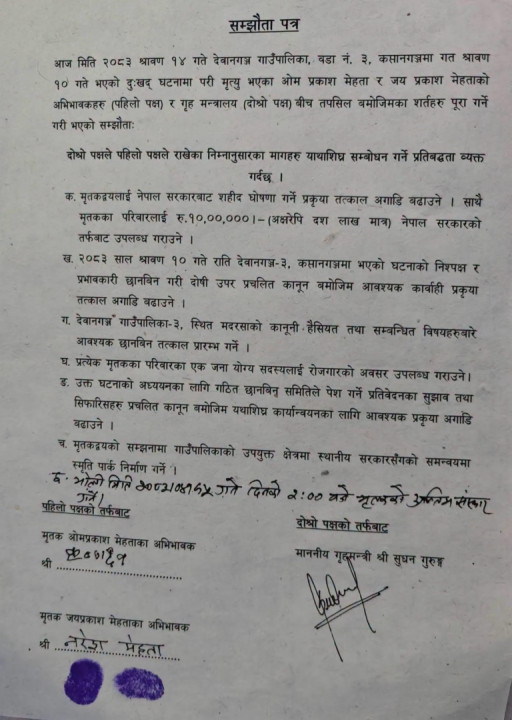 सम्झौता पत्र
आज मिति २०८३ श्रावण १४ गते देवानगञ्ज गाउँपालिका, वडा नं. ३, कसानगञ्जमा गत श्रावण
१० गते भएको दुःखद् घटनामा परी मृत्यु भएका ओम प्रकाश मेहता र जय प्रकाश मेहताको
अभिभावकहरु (पहिलो पक्ष) र गृह मन्त्रालय (दोश्रो पक्ष) बीच तपसिल बमोजिमका शर्तहरु पूरा गर्ने
गरी भएको सम्झौताः
दोश्रो पक्षले पहिलो पक्षले राखेका निम्नानुसारका मागहरु यथाशिघ्र सम्बोधन गर्ने प्रतिबद्धता व्यक्त
गर्दछ ।
क. मृतकद्वयलाई नेपाल सरकारबाट शहीद घोषणा गर्ने प्रकृया तत्काल अगाडि बढाउने । साथै
मृतकका परिवारलाई रु.१०,००,०००।– (अक्षरेपि दश लाख मात्र) नेपाल सरकारको
तर्फबाट उपलब्ध गराउने ।
ख. २०८३ साल श्रावण १० गते राति देवानगञ्ज-३, कसानगञ्जमा भएको घटनाको निश्पक्ष र
प्रभावकारी छानबिन गरी दोषी उपर प्रचलित कानून बमोजिम आवश्यक कार्बाही प्रकृया
तत्काल अगाडि बढाउने ।
ग. देवानगञ्ज गाउँपालिका-३, स्थित मदरसाको कानूनी हैसियत तथा सम्बन्धित विषयहरुबारे
आवश्यक छानबिन तत्काल प्रारम्भ गर्ने ।
घ. प्रत्येक मृतकका परिवारका एक जना योग्य सदस्यलाई रोजगारको अवसर उपलब्ध गराउने।
ङ. उक्त घटनाको अध्ययनका लागि गठित छानबिन समितिले पेश गर्ने प्रतिवेदनका सुझाव तथा
सिफारिसहरु प्रचलित कानून बमोजिम यथाशिघ्र कार्यान्वयनका लागि आवश्यक प्रकृया अगाडि
बढाउने ।
च. मृतकद्वयको सम्झनामा गाउँपालिकाको उपयुक्त क्षेत्रमा स्थानीय सरकारसँगको समन्वयमा
स्मृति पार्क निर्माण गर्ने ।
छ. भोली मिति गते दिनको २:०० बजे मृतकको अन्तिम संस्कार
गर्ने।
पहिलो पक्षको तर्फबाट
दोश्रो पक्षको तर्फबाट
मृतक ओमप्रकाश मेहताका अभिभावक
माननीय गृहमन्त्री श्री सुधन गुरुङ्ग
श्री
मृतक जयप्रकाश मेहताका अभिभावक
श्री नरेश मेहता